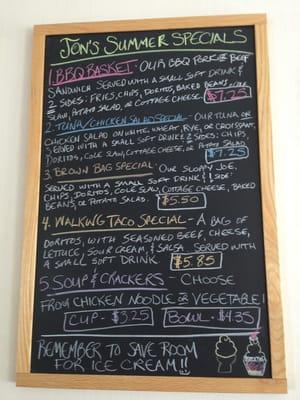 JON'S SUMMER SPECIALS
1. BBQ BASKET - OUR BBQ PORK OR BEEF
SANDWICH SERVED WITH A SMALL SOFT DRINK &
2 SIDES: FRIES, CHIPS, DORITOS, BAKED BEANS, COLE
SLAW, POTATO SALAD, OR COTTAGE CHEESE $7.25
2. TUNA/CHICKEN SALAD SPECIAL - OUR TUNA OR
CHICKEN SALAD ON WHITE, WHEAT, RYE, OR CROISSANT,
SERVED WITH A SMALL SOFT DRINK 2 SIDES: CHIPS,
DORITOS, COLE SLAW, COTTAGE CHEESE, OR POTATO SALAD
$7.25
3. BROWN BAG SPECIAL: OUR SLOPPY JOE,
SERVED WITH A SMALL SOFT DRINK & 1 SIDE:
CHIPS, DORITOS, COLE SLAW, COTTAGE CHEESE, BAKED
BEANS, OR POTATO SALAD. $5.50
4. WALKING TACO SPECIAL - A BAG OF
DORITOS, WITH SEASONED BEEF, CHEESE,
LETTUCE, SOUR CREAM, & SALSA SERVED WITH
A SMALL SOFT DRINK $5.85
5. SOUP & CRACKERS - CHOOSE
FROM CHICKEN NOODLE OR VEGETABLE!
CUP - $3.25 BOWL - $4.35
REMEMBER TO SAVE ROOM
FOR ICE CREAM!!